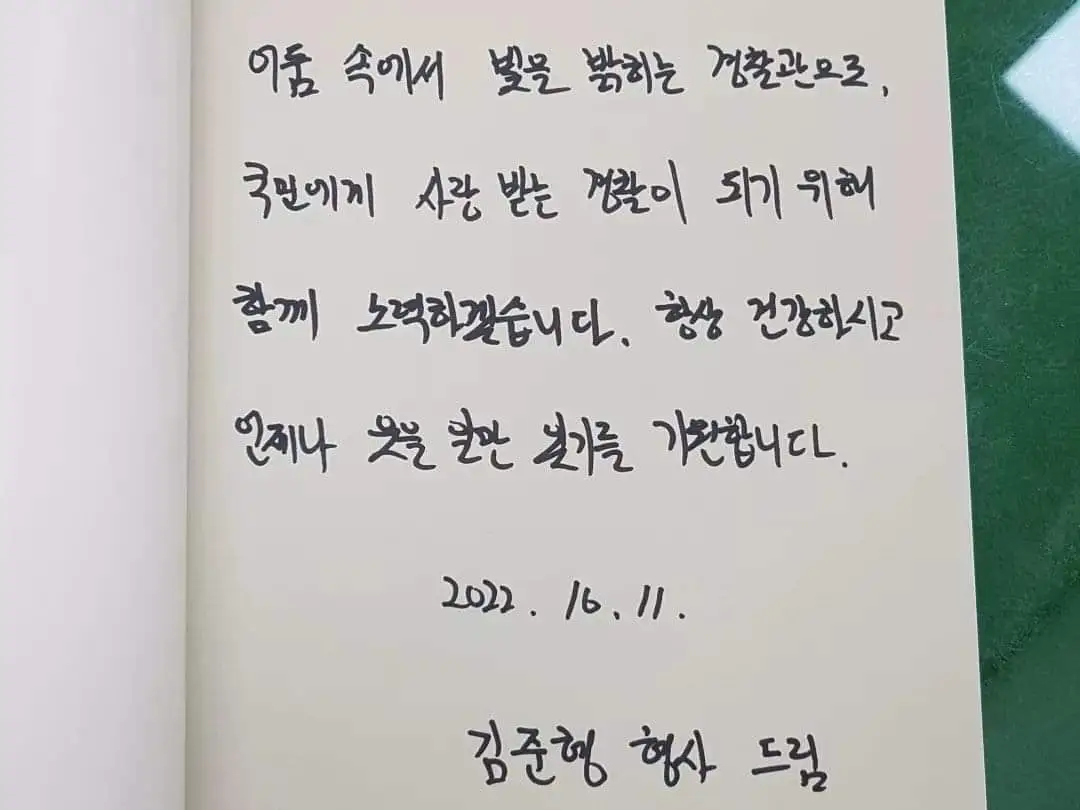 어둠 속에서 빛을 밝히는 경찰관으로,
국민에게 사랑 받는 경찰이 되기 위해
함께 노력하겠습니다. 항상 건강하시고
언제나 웃을 일만 있기를 기원합니다.
2022. 10. 11.
김준형 형사 드림